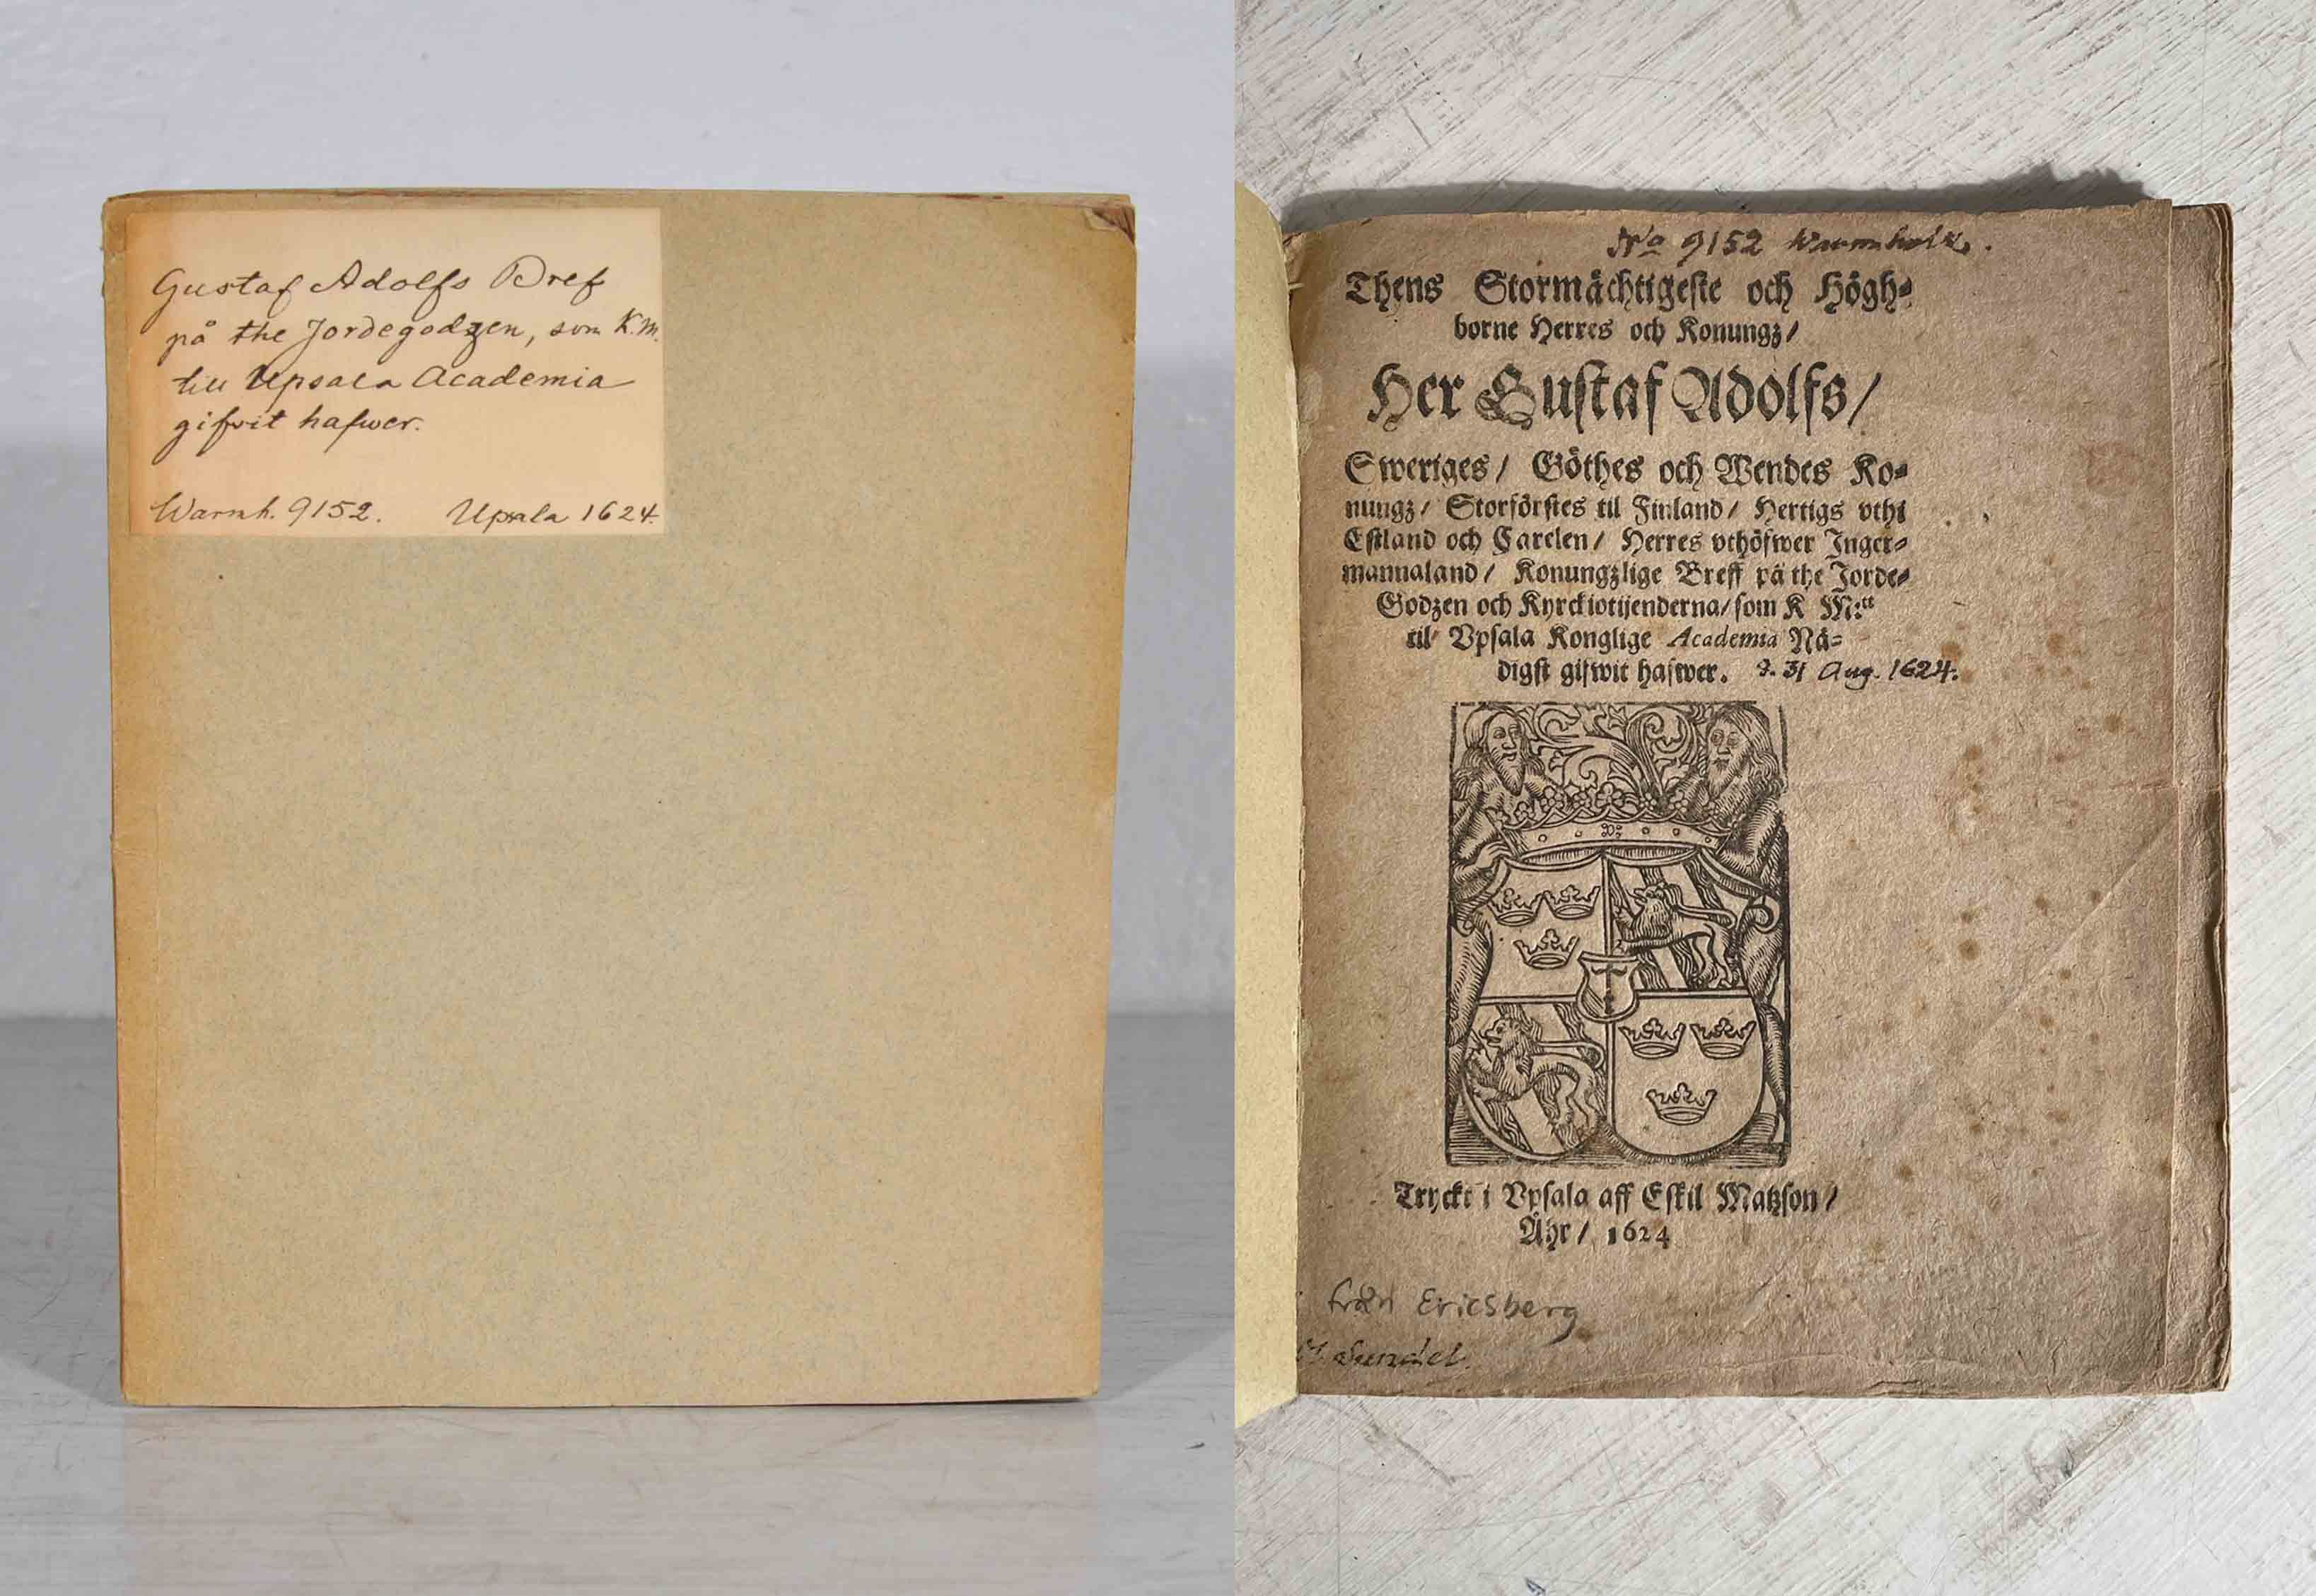 Gustaf Adolfs Bref
på the Jordegodzen, som K.M.
till Upsala Academia
gifvit hafwer.
Warnh. 9152. Upsala 1624.
No 9152 Warmholtz.
Thens Stormächtigeste och Högh⸗
borne Herres och Konungz/
Her Gustaf Adolfs/
Sweriges/ Göthes och Wendes Ko⸗
nungz/ Storförstes til Finland/ Hertigs vthi
Estland och Carelen/ Herres vthöfwer Inger⸗
mannaland/ Konungzlige Breff på the Jorde⸗
Godzen och Kyrckiotijenderna/ som K M:tt
til Vpsala Konglige Academia Nå⸗
digst gifwit hafwer. d. 31 Aug. 1624.
Tryckt i Vpsala aff Eskil Matzson/
Åhr/ 1624
från Ericsberg
Sundel.